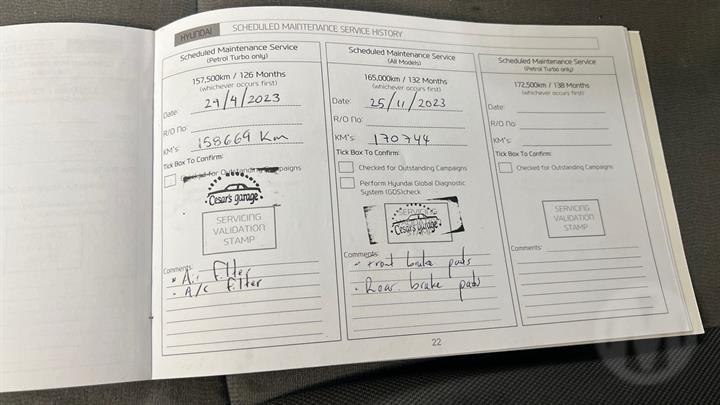 HYUNDAI
SCHEDULED MAINTENANCE SERVICE HISTORY
Scheduled Maintenance Service
(Petrol Turbo only)
157,500km / 126 Months
(whichever occurs first)
Date: 29/4/2023
R/O no:
KM's: 158669 Km
Tick Box To Confirm:
Checked for Outstanding Campaigns
Cesar's garage
SERVICING
VALIDATION
STAMP
Comments:
• Air filter
• A/c filter
Scheduled Maintenance Service
(All Models)
165,000km / 132 Months
(whichever occurs first)
Date: 25/11/2023
R/O no:
KM's: 170744
Tick Box To Confirm:
Checked for Outstanding Campaigns
Perform Hyundai Global Diagnostic
System (GDS)check
SERVICING
Cesar's garage
STAMP
Comments:
- Front brake pads
• Rear brake pads
Scheduled Maintenance Service
(Petrol Turbo only)
172,500km / 138 Months
(whichever occurs first)
Date:
R/O no:
KM's:
Tick Box To Confirm:
Checked for Outstanding Campaigns
SERVICING
VALIDATION
STAMP
Comments:
22